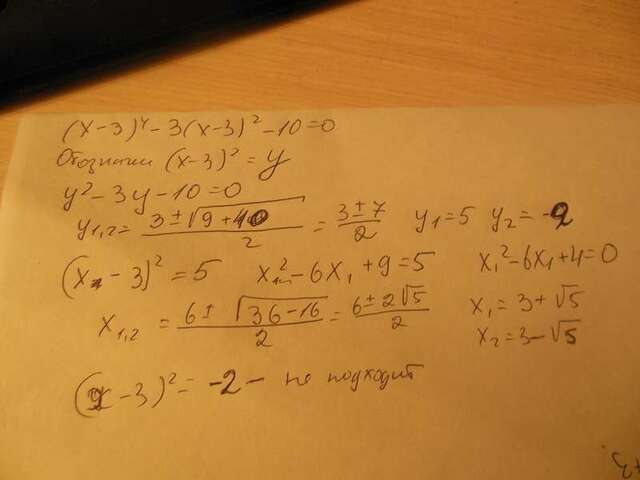 (x-3)⁴-3(x-3)²-10=0
Обозначим (x-3)²=y
y²-3y-10=0
y₁,₂=(3±√(9+40))/2=(3±7)/2 y₁=5 y₂=-2
(x-3)²=5 x₁²-6x₁+9=5 x₁²-6x₁+4=0
x₁,₂=(6±√(36-16))/2=(6±2√5)/2 x₁=3+√5
x₂=3-√5
(x-3)²=-2- не подходит